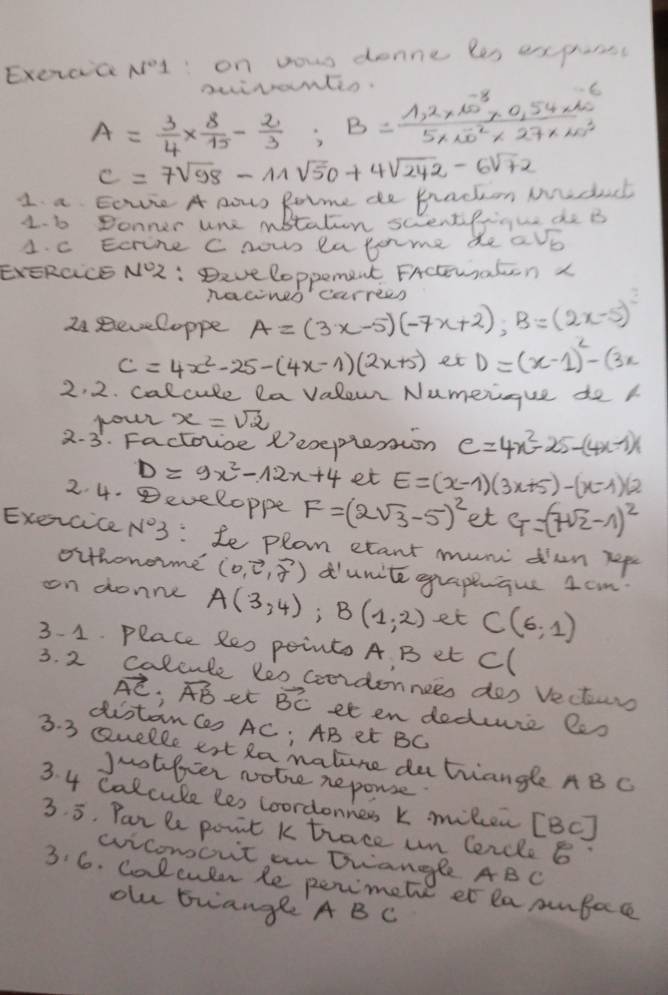 Exercice N°1 : on vous donne les express
suivantes.
A = 3/4 × 8/15 - 2/3 ; B = (1,2×10^-8 × 0,54×10^-6)/(5×10^-2 × 27×10^3)
C = 7√98 - 11√50 + 4√242 - 6√72
1.a. Ecrire A sous forme de fraction irreduct
1.b Donner une notation scientifique de B
1.c Ecrire C sous la forme de a√b
EXERCICE N°2 : Developpement FActorisation &
racines carrées
21 Developpe A = (3x-5)(-7x+2) ; B = (2x-5)^2
C = 4x²-25-(4x-1)(2x+5) et D = (x-1)²-(3x
2.2. calcule la Valeur Numerique de A
pour x = √2
2-3. Factorise l'expression C = 4x²-25-(4x-1)(
D = 9x²-12x+4 et E = (x-1)(3x+5)-(x-1)(2
2.4. Developpe F = (2√3-5)² et G = (7√2-1)²
Exercice N°3 : Le plan etant muni d'un repe
orthonormé (o,i⃗,j⃗) d'unité graphique 1cm.
on donne A(3;4) ; B(1;2) et C(6;1)
3-1. Place les points A, B et C(
3.2 calcule les coordonnées des vecteurs
AC⃗ ; AB⃗ et BC⃗ et en deduire les
distances AC ; AB et BC
3.3 Quelle est la nature du triangle ABC
Justifier votre reponse.
3.4 Calcule les coordonnées K milieu [BC]
3.5. Par le point K trace un Cercle C
circonscrit au triangle ABC
3.6. Calculer le perimetre et la surface
du triangle ABC